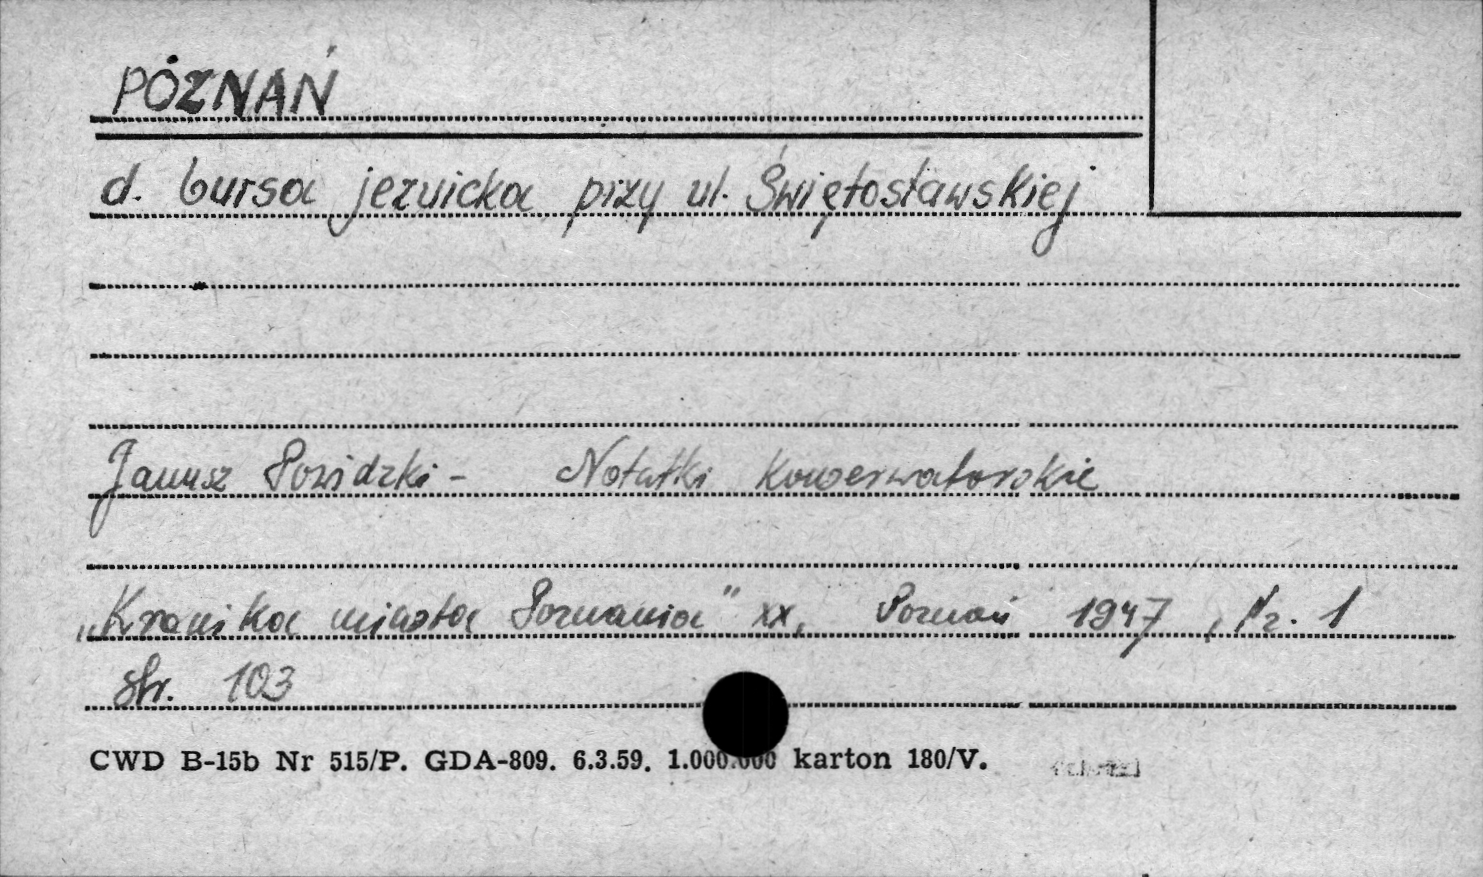 POZNAŃ
d. bursa jezuicka przy ul. Świętosławskiej
Janusz Powidzki - Notatki Konserwatorskie
„Kronika miasta Poznania" XX, Poznań 1947, Nr. 1
str. 103
CWD B-15b Nr 515/P. GDA-809. 6.3.59. 1.000.000 karton 180/V.